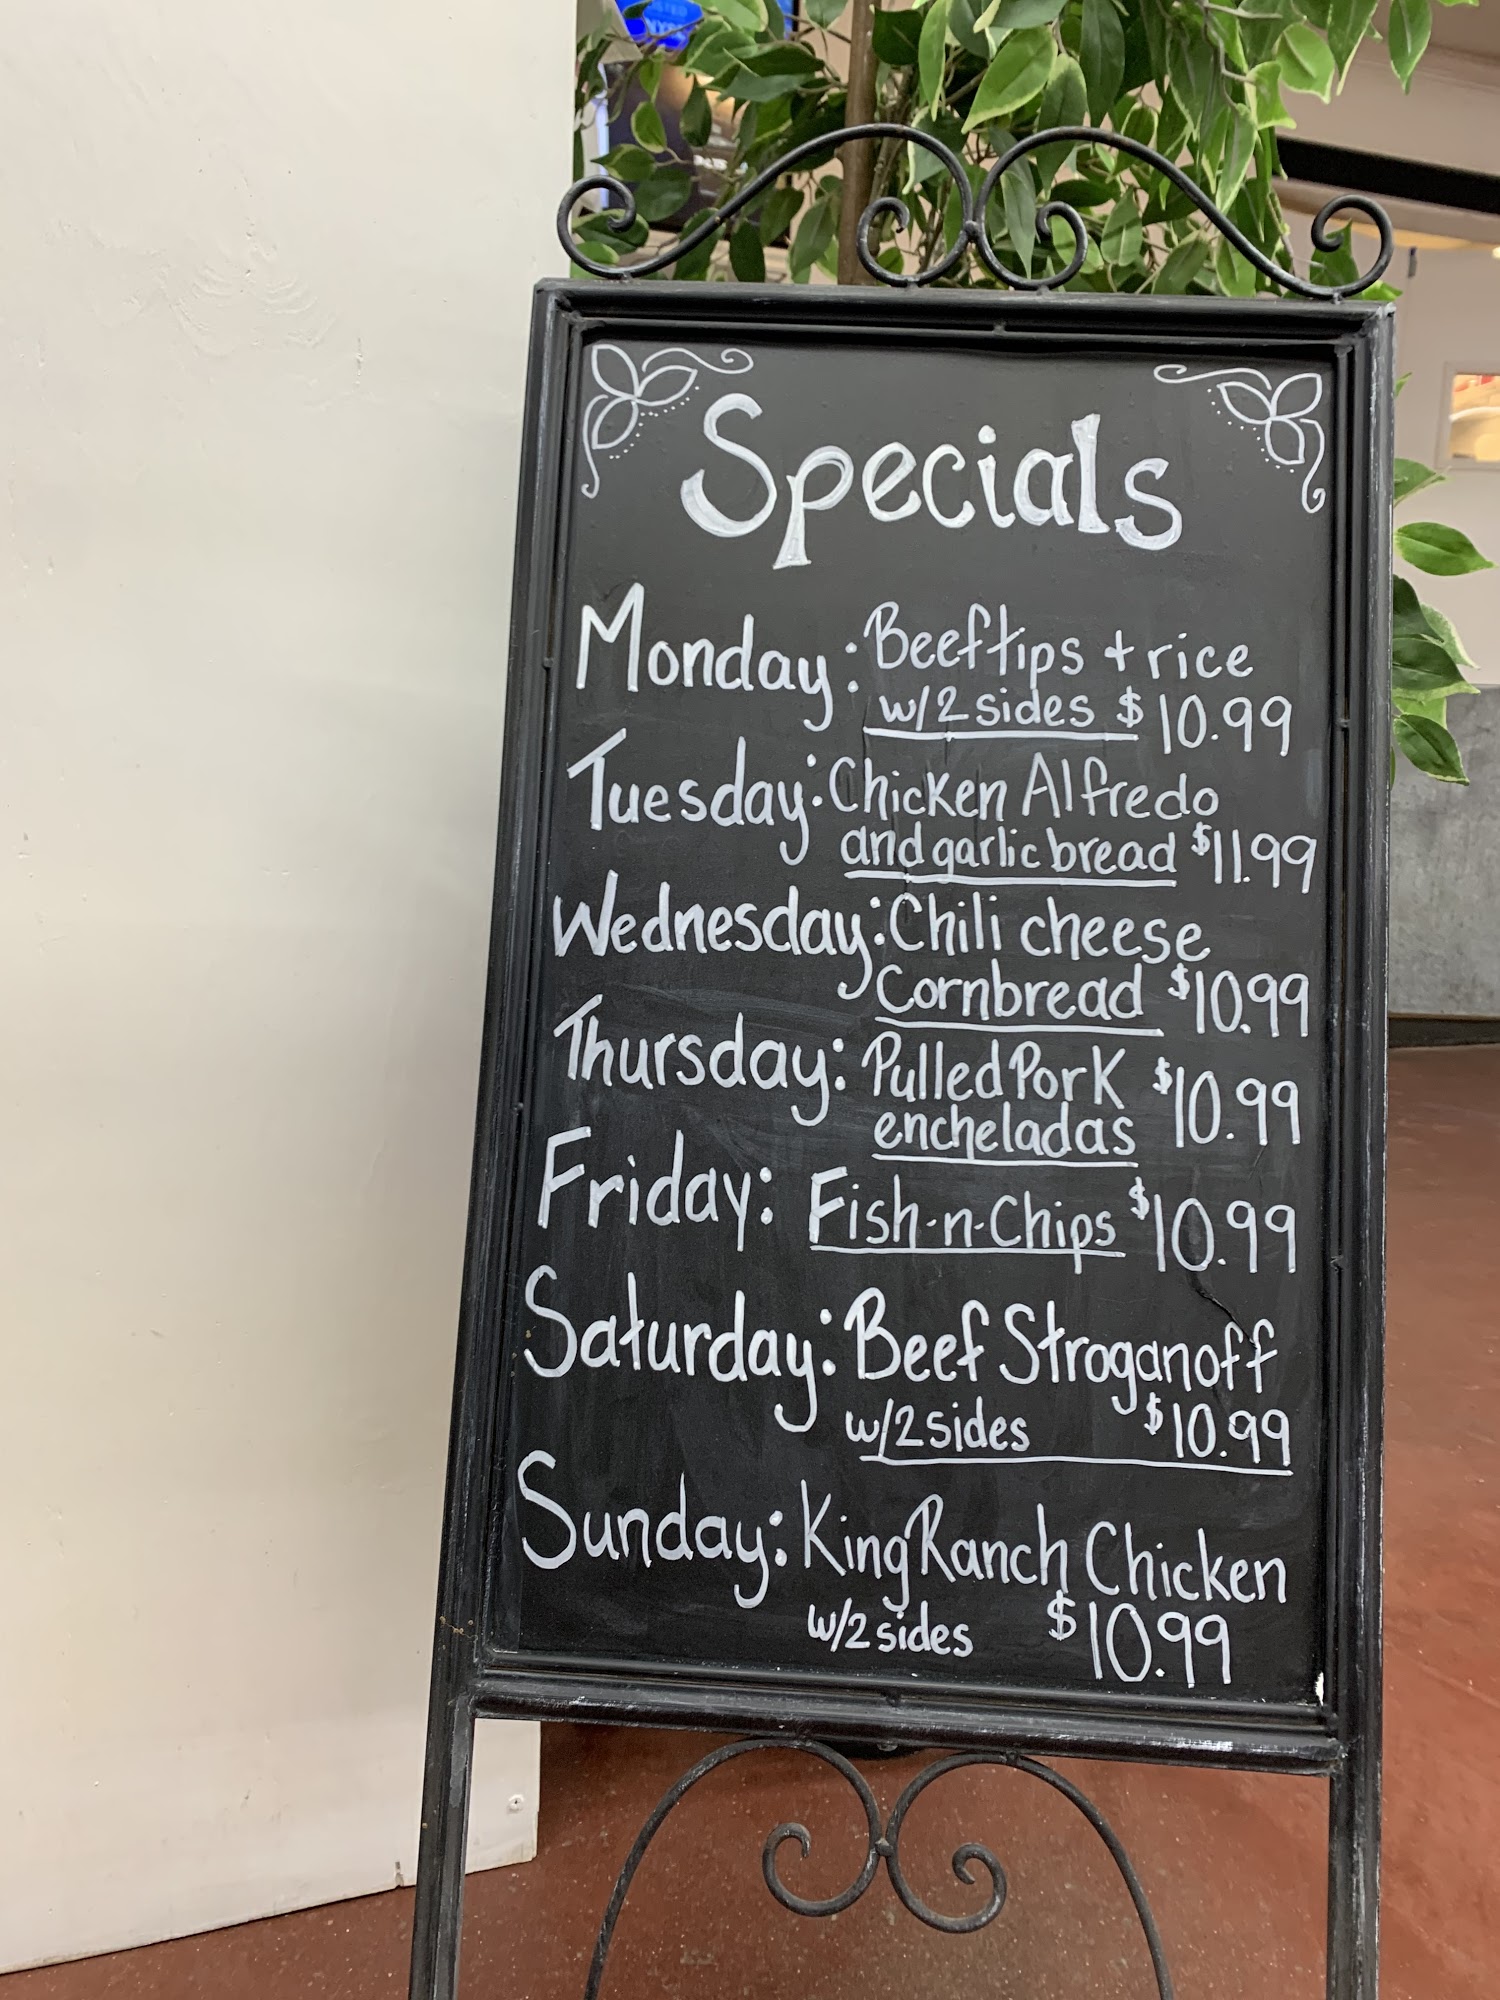 Specials
Monday: Beef tips + rice
w/2 sides $10.99
Tuesday: Chicken Alfredo
and garlic bread $11.99
Wednesday: Chili cheese
Cornbread $10.99
Thursday: Pulled Pork $10.99
encheladas
Friday: Fish-n-Chips $10.99
Saturday: Beef Stroganoff
w/2 sides $10.99
Sunday: King Ranch Chicken
w/2 sides $10.99